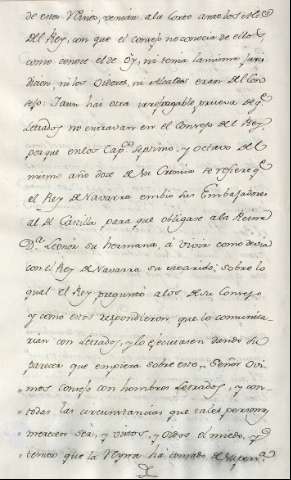 de estos Reinos, venian a la Corte ante los
del Rey, con que el consejo no conocia de ellos
como conoce el de oy, ni tenia la misma Juris
diccion, ni los Oidores, ni Alcaldes eran del Con
sejo. I aun hai otra irrefragable prueva de qe.
Letrados no entravan en el Consejo del Rey,
porque en los Capos. septimo, y octavo del
mismo año doce de su Cronica se refiere qe.
el Rey de Navarra embio sus Embajadores
al de Castilla para que obligase a la Reina
Da. Leonor su hermana, á vivir como devia
con el Rey de Navarra su marido; sobre lo
qual el Rey preguntó a los de su Consejo
y como estos respondieron, que lo comunica
rian con Letrados, y lo ejecutasen dando su
parecer que empieza sobre esto, Señor ovi
mos Consejo con hombres Letrados, y con
todas las circunstancias que tales personas
merecen ser, y vistos, y oidos el miedo, y
temor que la Reyna ha tomado